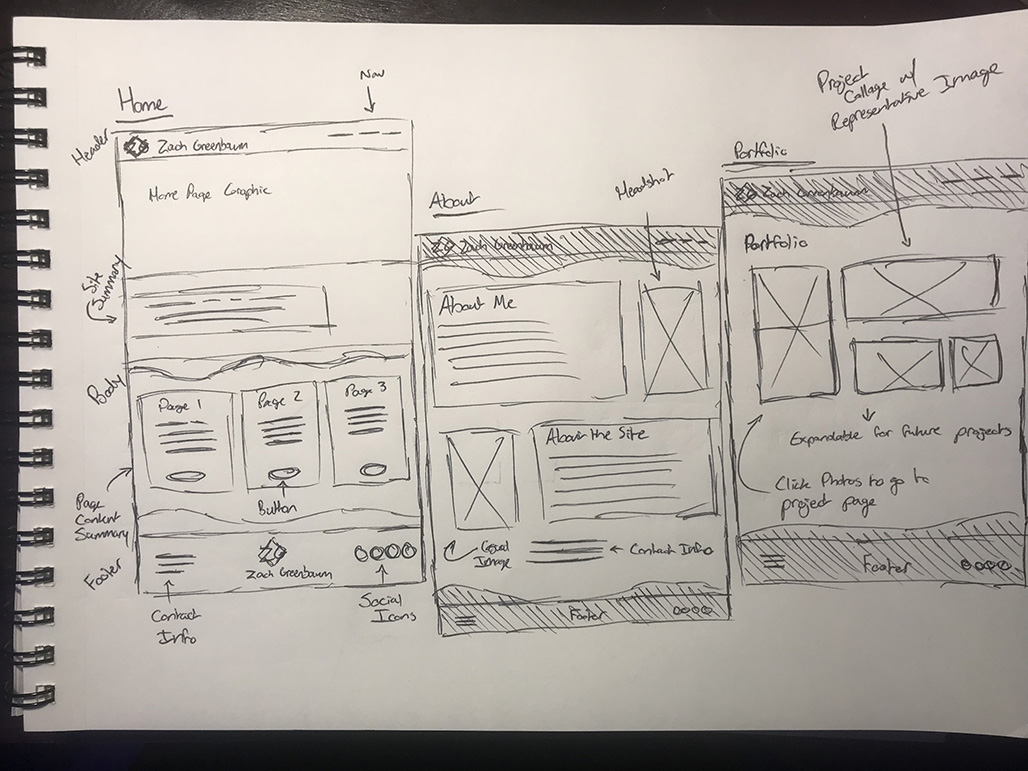 Home
Nav
Header
ZG Zach Greenbaum
Home Page Graphic
Site
Summary
Body
Page 1
Page 2
Page 3
Button
Page
Content
Summary
Footer
ZG
Zach Greenbaum
Contact
Info
Social
Icons
About
Headshot
ZG Zach Greenbaum
About Me
About the Site
Casual
Image
Contact Info
Footer
Project
Collage w/
Representative Image
Portfolio
ZG Zach Greenbaum
Portfolio
Expandable for future projects
Click Photos to go to
project page
Footer